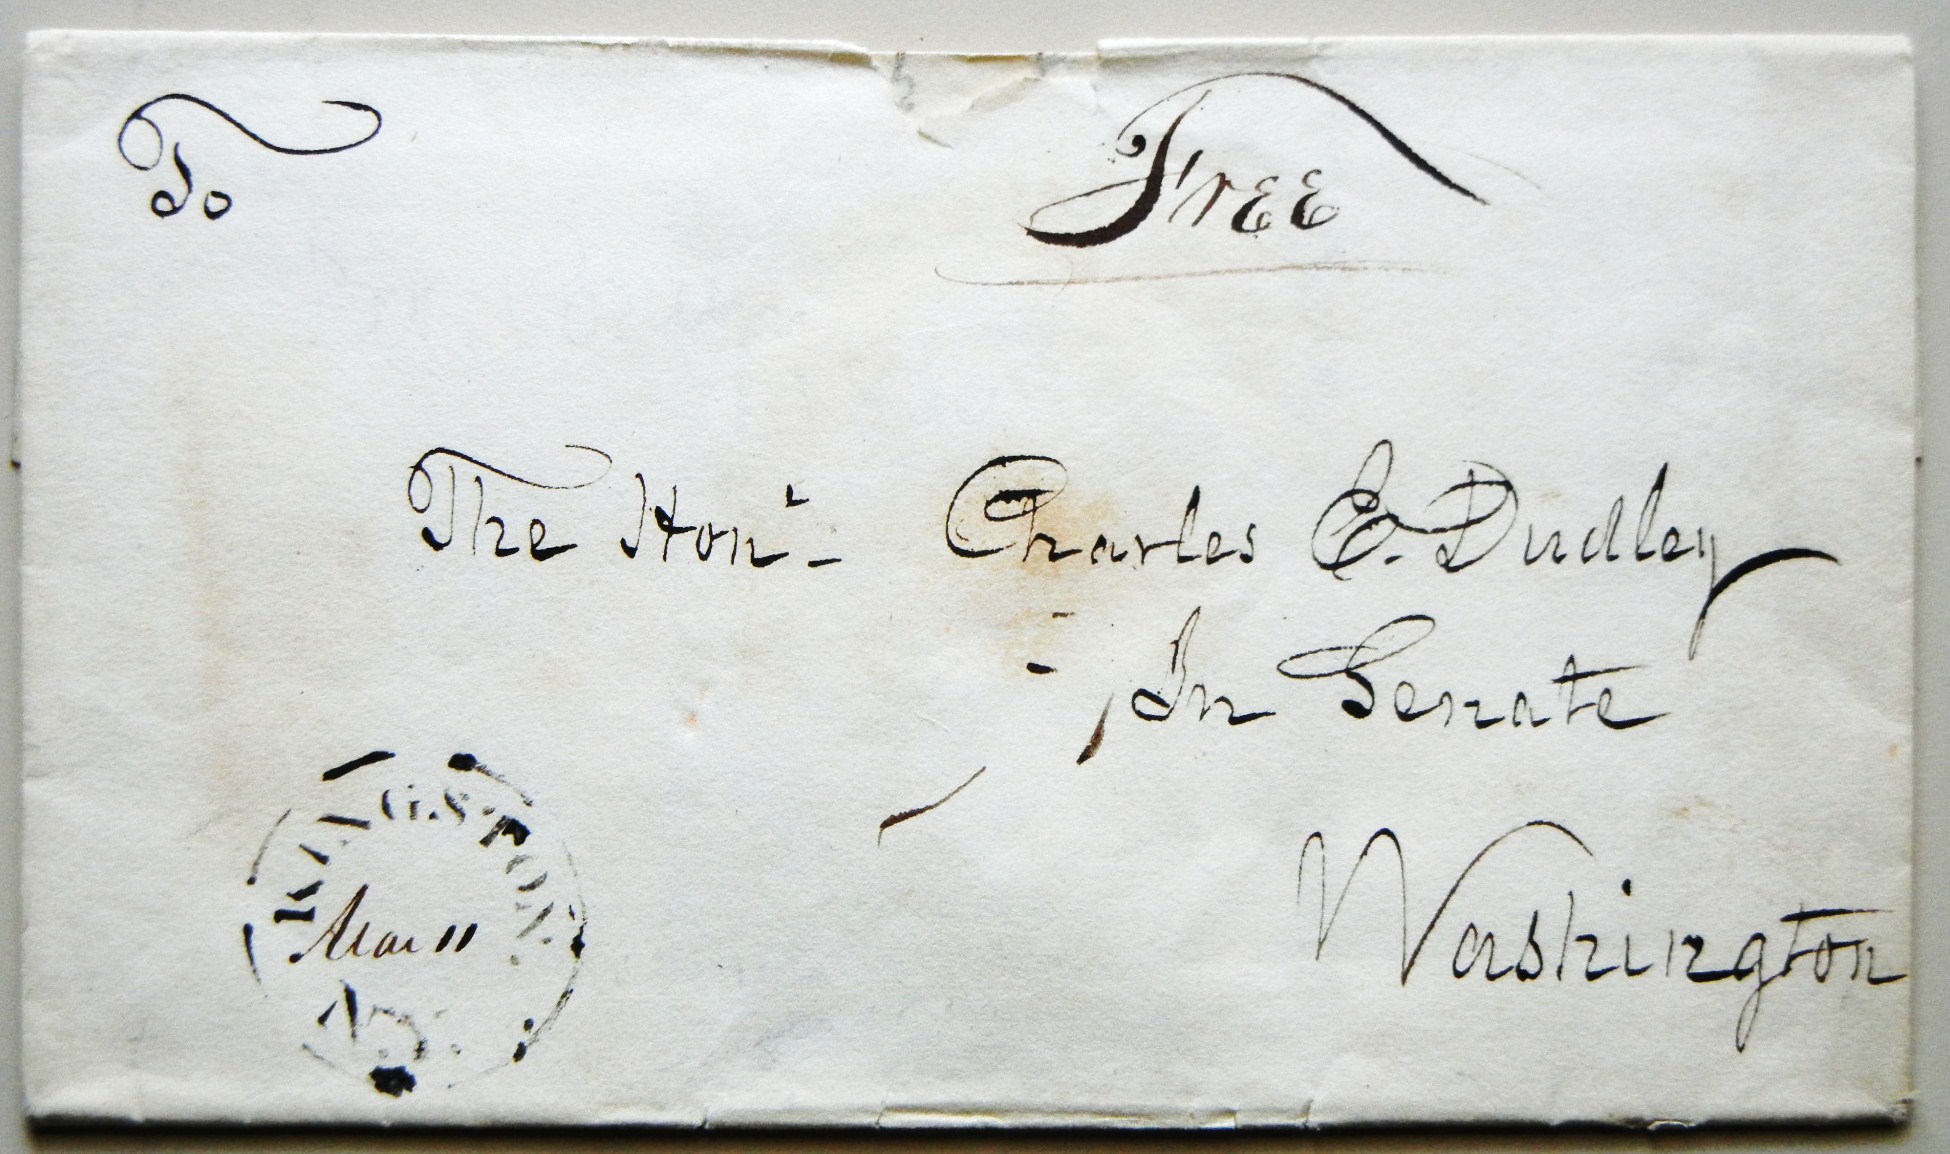 To
Free
The Hon.
Charles E. Dudley
In Senate
Washington
KINGSTON
Mar 11